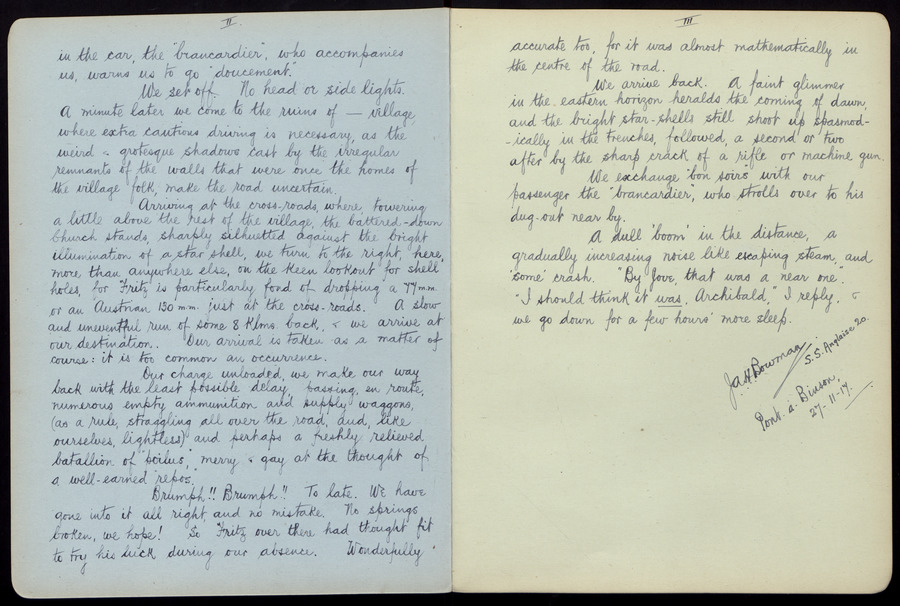 II.
in the car, the "brancardier", who accompanies
us, warns us to go "doucement".
We set off. No head or side lights.
A minute later we come to the ruins of — village,
where extra cautious driving is necessary, as the
weird & grotesque shadows cast by the irregular
remnants of the walls that were once the homes of
the village folk, make the road uncertain.
Arriving at the cross-roads, where towering
a little above the rest of the village, the battered-down
Church stands, sharply silhuetted against the bright
illumination of a star shell, we turn to the right, here,
more than anywhere else, on the keen lookout for shell
holes, for "Fritz is particularly fond of dropping" a 77 m.m.
or an Austrian 130 m.m. just at the cross-roads. A slow
and uneventful run of some 8 Klms. back, & we arrive at
our destination. Our arrival is taken as a matter of
course: it is too common an occurrence.
Our charge unloaded, we make our way
back with the least possible delay, passing, en route,
numerous empty ammunition and supply waggons,
(as a rule, straggling all over the road, and, like
ourselves, lightless) and perhaps a freshly relieved
batallion of "poilus," merry & gay at the thought of
a well-earned "repos."
Brumph!! Brumph!! To late. We have
gone into it all right, and no mistake. No springs
broken, we hope! So "Fritz over there had thought fit
to try his luck during our absence. Wonderfully
III
accurate too, for it was almost mathematically in
the centre of the road.
We arrive back. A faint glimmer
in the eastern horizon heralds the coming of dawn,
and the bright star-shells still shoot up spasmod-
-ically in the trenches, followed, a second or two
after by the sharp crack of a rifle or machine gun.
We exchange 'bon soirs' with our
passenger the "brancardier", who strolls over to his
dug-out near by.
A dull 'boom' in the distance, a
gradually increasing noise like escaping steam, and
'some' crash. "By Jove, that was a near one".
"I should think it was, Archibald," I reply, &
we go down for a few hours' more sleep.
Jas H. Bowman
S.S. Anglaise 20.
Pont. a. Binson,
27-11-17.